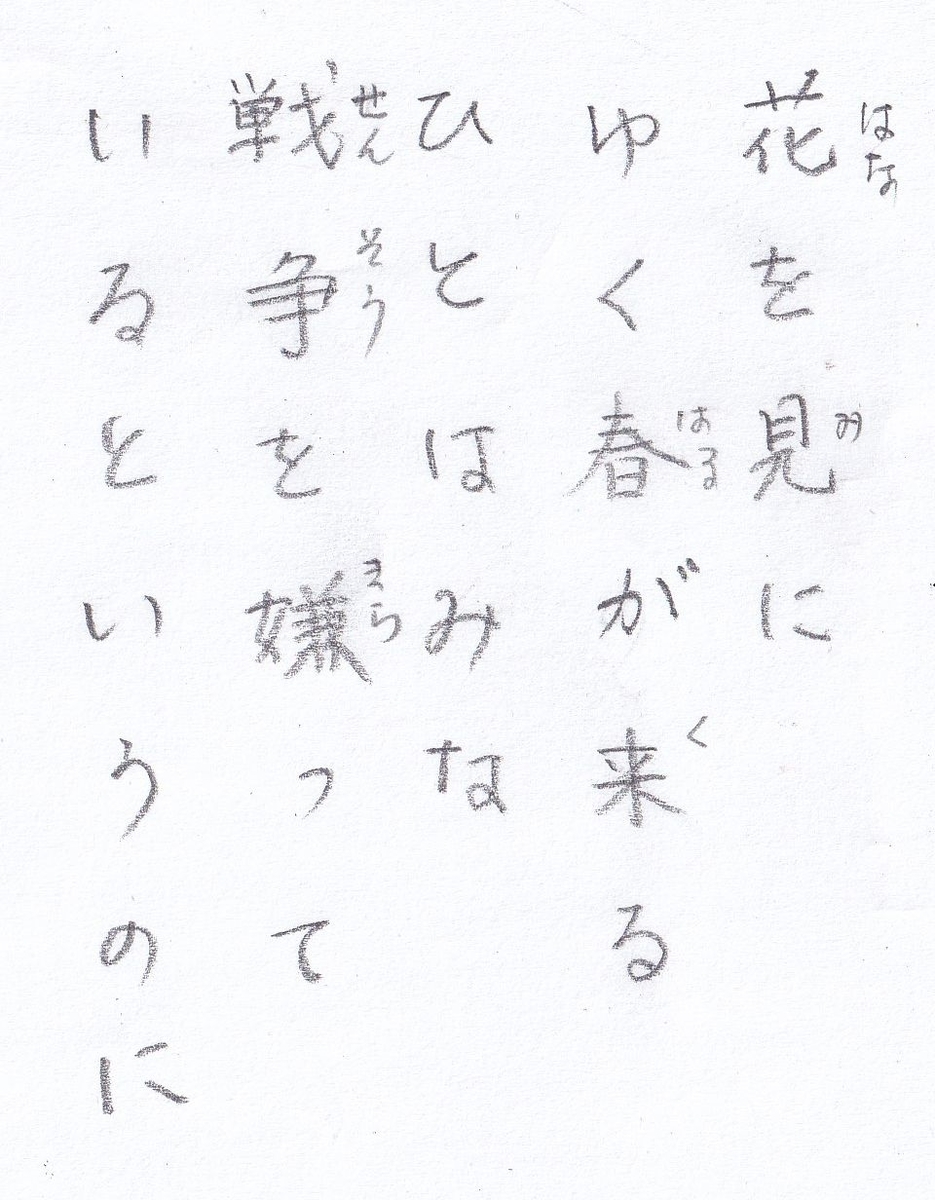 花を見に
ゆく春が来る
ひとはみな
戦争を嫌って
いるというのに
はな
み
はる
く
せん
そう
きら